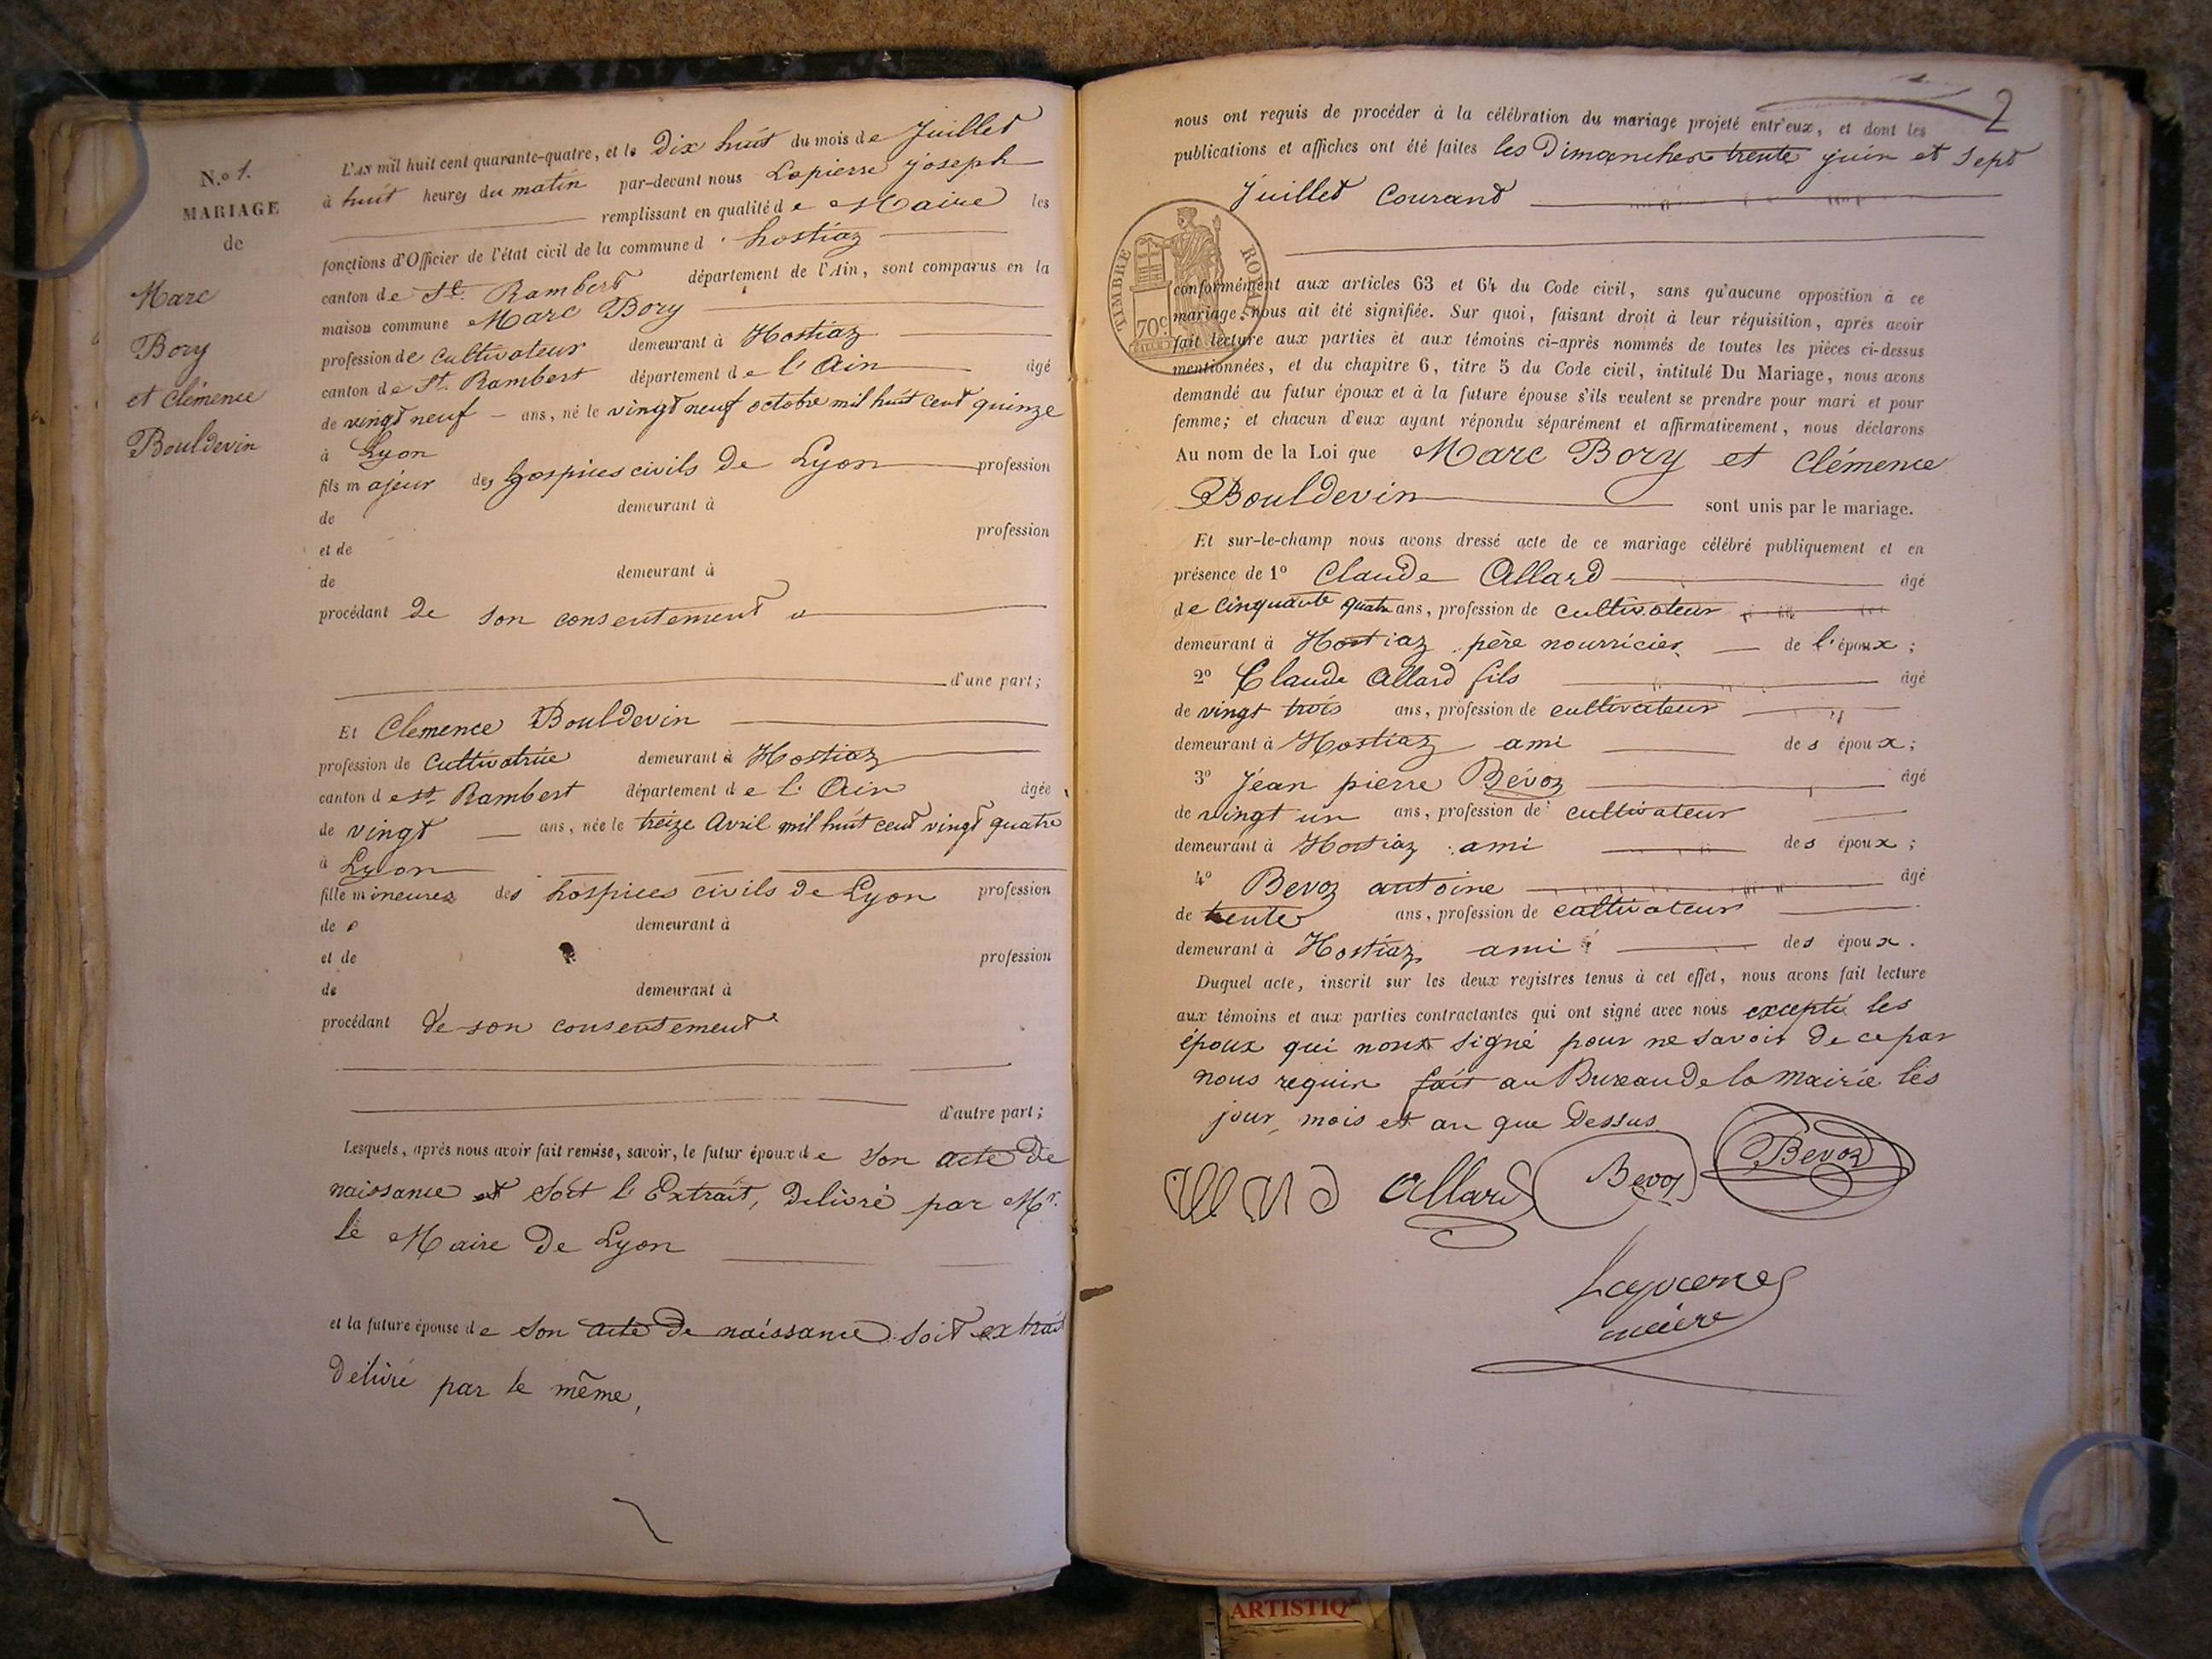 N.o 1.
MARIAGE
de
Marc
Bory
et Clémence
Bouldevin
L'AN mil huit cent quarante-quatre, et le Dix huit du mois de Juillet
à huit heures du matin par-devant nous Lapierre joseph
remplissant en qualité de Maire les
fonctions d'Officier de l'état civil de la commune d' hostiaz
canton de St. Rambert département de l'Ain, sont comparus en la
maison commune Marc Bory
profession de Cultivateur demeurant à Hostiaz
canton de St. Rambert département de l'Ain âgé
de vingt neuf ans, né le vingt neuf octobre mil huit cent quinze
à Lyon
fils majeur des hospices civils de Lyon profession
de demeurant à
et de profession
de demeurant à
procédant de son consentement
d'une part;
Et Clemence Bouldevin
profession de Cultivatrice demeurant à Hostiaz
canton de st. Rambert département de l'Ain âgée
de vingt ans, née le treize Avril mil huit cent vingt quatre
à Lyon
fille mineure des hospices civils de Lyon profession
de demeurant à
et de profession
de demeurant à
procédant de son consentement
d'autre part;
Lesquels, après nous avoir fait remise, savoir, le futur époux de son acte de
naissance et soit l'Extrait, Delivré par Mr.
le Maire De Lyon
et la future épouse de son acte De naissance soit extrait
Delivré par le même,
2
nous ont requis de procéder à la célébration du mariage projeté entr'eux, et dont les
publications et affiches ont été faites les Dimanches trente juin et sept
Juillet Courant
TIMBRE ROYAL
70c
conformément aux articles 63 et 64 du Code civil, sans qu'aucune opposition à ce
mariage, nous ait été signifiée. Sur quoi, faisant droit à leur réquisition, après avoir
fait lecture aux parties et aux témoins ci-après nommés de toutes les pièces ci-dessus
mentionnées, et du chapitre 6, titre 5 du Code civil, intitulé Du Mariage, nous avons
demandé au futur époux et à la future épouse s'ils veulent se prendre pour mari et pour
femme; et chacun d'eux ayant répondu séparément et affirmativement, nous déclarons
Au nom de la Loi que Marc Bory et Clémence
Bouldevin sont unis par le mariage.
Et sur-le-champ nous avons dressé acte de ce mariage célébré publiquement et en
présence de 1o Claude Allard âgé
de Cinquante quatre ans, profession de cultivateur
demeurant à Hostiaz père nourricier de l'époux;
2o Claude Allard fils âgé
de vingt trois ans, profession de cultivateur
demeurant à Hostiaz ami des époux;
3o Jean pierre Bévoz âgé
de vingt un ans, profession de cultivateur
demeurant à Hostiaz ami des époux;
4o Bevoz antoine âgé
de trente ans, profession de cultivateur
demeurant à Hostiaz ami des époux.
Duquel acte, inscrit sur les deux registres tenus à cet effet, nous avons fait lecture
aux témoins et aux parties contractantes qui ont signé avec nous excepté les
époux qui nont signé pour ne savoir De ce par
nous requin fait au Bureau De la mairie les
jour, mois et an que Dessus
allard Allard Bevoz Bevoz
Lapierre
maire
ARTISTIQ